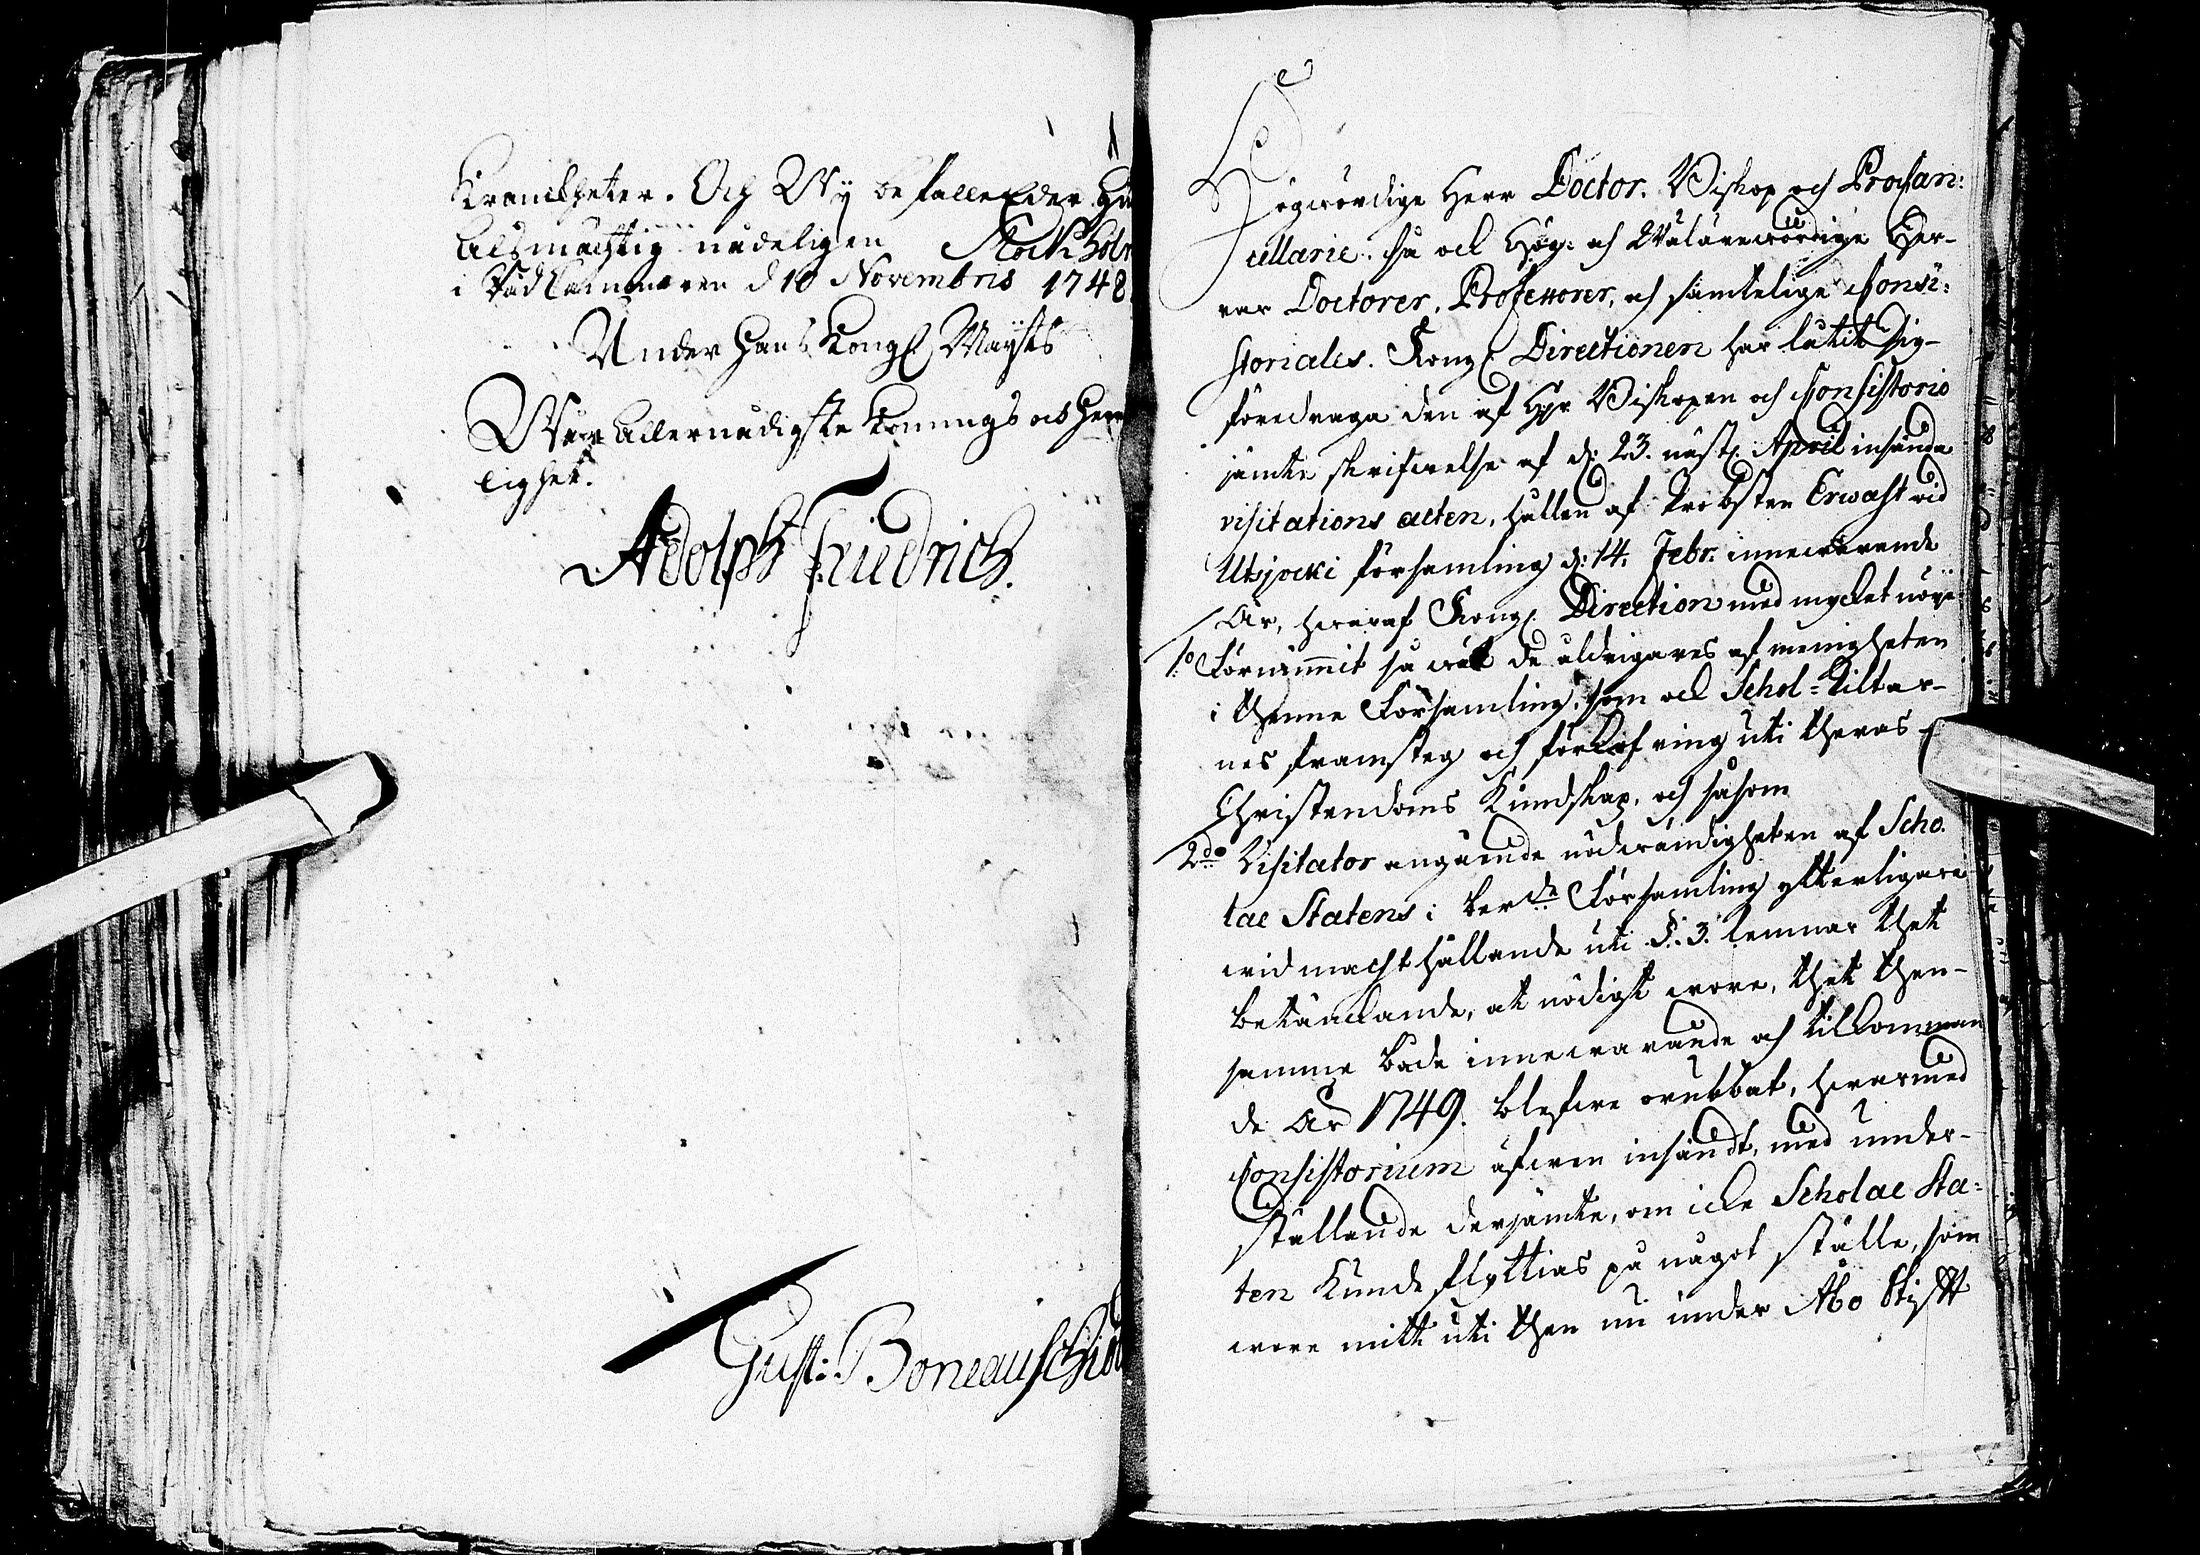 Kranckheter. Och Wij befalle Eder Gud
Alsmächtig nådeligen Stockholm
i Rådkammaren d 10 Novembris 1748.
Under Hans Kongl Maÿts
Wår Allernådigste Konungs och Herr
lighet.
Adolph Friedrich.
Gust: Boneauschiöl
Högwördige Herr Doctor. Biskop och Procan:
cellarie. Så ock Hög: och Wälärewördige Her-
rar Doctorer, Professorer, och samtelige Consi:
storiales. Kongl. Directionen har låtit sig
föredraga den af Hr Biskopen och Consistorio
jämte skrifwelse af d: 23. nästl. April insände
visitations acten, hållen af Probsten Erwast wid
Utsjocki församling d: 14. Febr. innewarende
År, hwaraf Kongl. Direction med mycket nöye
1:o Förnummit så wäl de äldrigares af menigheten
i thenne Församling, som ock Schol-Piltar-
nes framsteg och förkofring uti theras
Christendoms Kundskap, och såsom
2do Visitator angående nödwändigheten af Scho-
lae Statens i berde Församling ytterligare
wid macht hållande uti §. 3. lemnar thet
betänckande, at nödigt wore, thet then-
samme både innewarande och tilkomman
de År 1749. blefwe orubbat, hwarmed
Consistorium äfwen insändt, med under-
ställande derjämte, om icke Scholae Sta-
ten kunde flyttias på något ställe, som
wore mitt uti then nu under Åbo Stifft